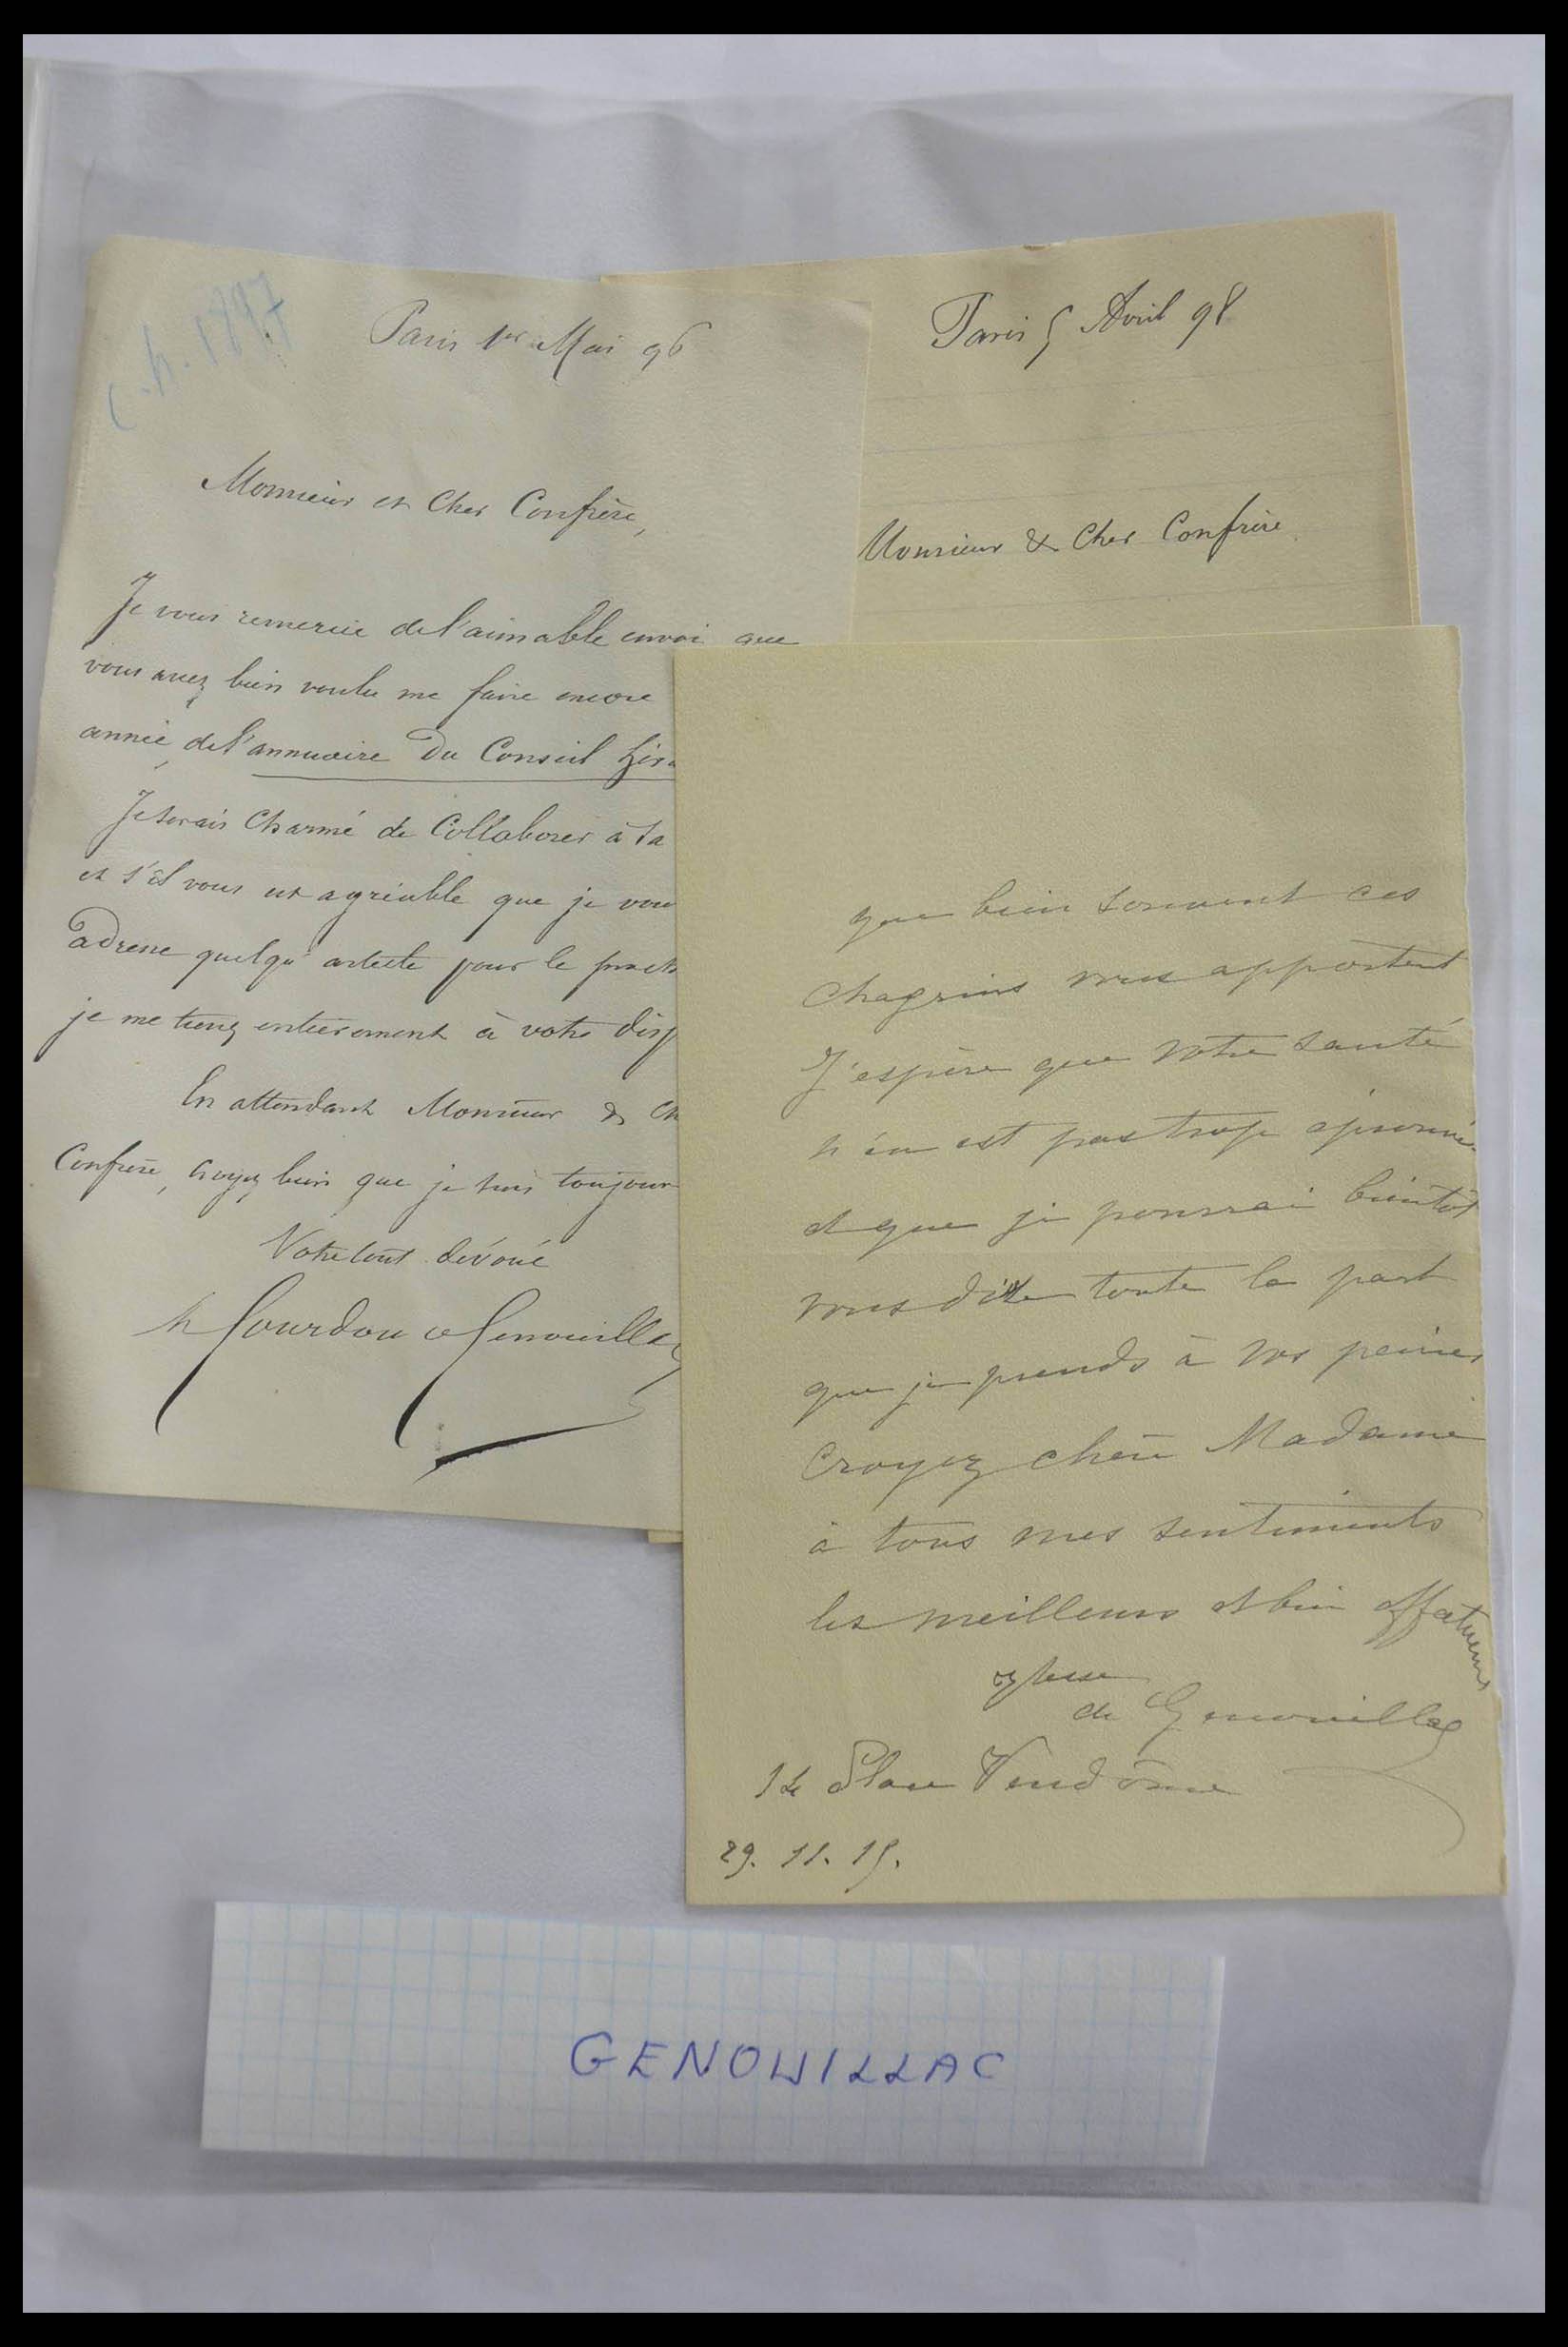 Paris 1er Mai 96
Monsieur et Cher Confrère,
Je vous remercie de l'aimable envoi que
vous avez bien voulu me faire encore
année, de l'annuaire Du Conseil
Je serais Charmé de Collaborer à
et s'il vous est agréable que je
adresse quelqu' article pour le
je me tiens entièrement à votre
En attendant Monsieur &
Confrère, croyez bien que je suis
Votre tout dévoué
h Gourdon de Genouillac
Paris 5 Avril 98
Monsieur & Cher Confrère
que bien souvent ces
chagrins vous apportent
J'espère que votre santé
n'en est pas trop
et que je pourrai bientôt
vous dire toute la part
que je prends à vos peines
Croyez chère Madame
à tous mes sentiments
les meilleurs et bien affectueux
de Genouillac
Place Vendôme
29. 11. 15.
GENOUILLAC